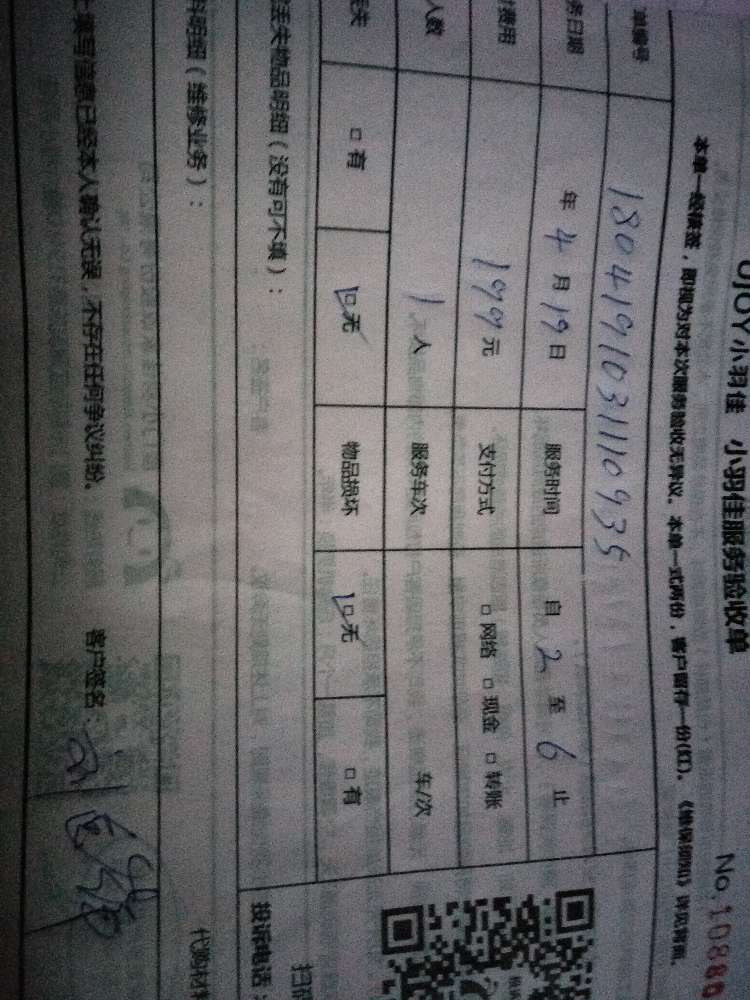 UJOY小羽佳 小羽佳服务验收单
No.10886
本单一经接签，即视为对本次服务验收无异议。本单一式两份，客户留存一份(红)。
单编号 1804191031110935
务日期 年 4 月 19 日 服务时间 自 2 至 6 止
费用 199元 支付方式 □ 网络 □ 现金 □ 转账
人数 1 人 服务车次 车/次
遗失 □ 有 □ 无 物品损坏 □ 无 □ 有
遗失物品明细（没有可不填）：
投诉电话：
明细（维修业务）：
填写信息已经本人确认无误，不存在任何争议纠纷。
客户签名：